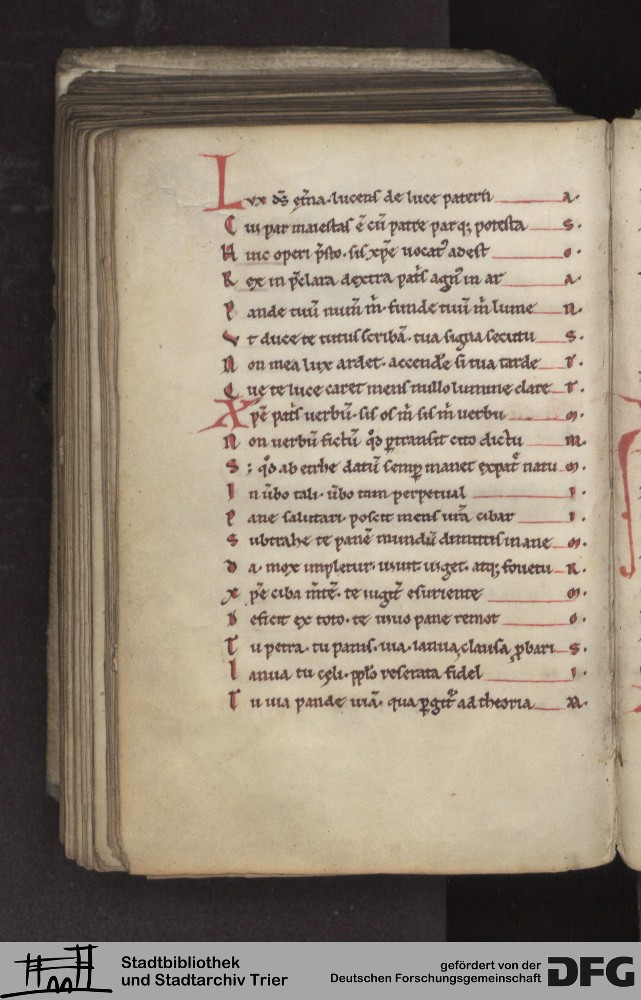 Lvx dn̄s et̄na · lucens de luce patern̄ a ·
C ui par maiestas ē cū patre parq; potesta s ·
H uic operi p̄sto · sis xp̄e uocatꝰ adest o ·
R ex in p̄clara dextra pat̄s agnꝰ in ar a ·
P ande tuū num̄ m̄ · funde tuū m̄ lume n ·
V t duce te tutus scribā · tua signa secutu s ·
N on mea lux ardet · accendere si tua tarde t ·
C ue te luce caret mens nullo lumine clare t ·
Xp̄e pat̄s uerbū · sis os m̄ sis m̄ uerbu m ·
N on uerbū fictū qd̄ ꝑtransit cito dictu m ·
S ; qd̄ ab ethre datū semꝑ manet ex pat̄ natu m ·
I n ūbo tali · ūbo tam perpetual i ·
P ane salutari · poscit mens ur̄a cibar i ·
S ubtrahe te panē mundū dimittis inane m ·
D a · mox impletur · uiuit uiget · atq; fouetu r ·
X p̄e ciba m̄tē · te iugit̄ esuriente m ·
D eficit ex toto · te uiuo pane remot o ·
T u petra · tu panis · uia · ianua, clausa ꝓbari s ·
I anua tu cęli · pp̄lo reserata fidel i ·
T u uia pande uiā · qua ꝑgit̄ ad theoria m ·
Stadtbibliothek
und Stadtarchiv Trier
gefördert von der
Deutschen Forschungsgemeinschaft
DFG